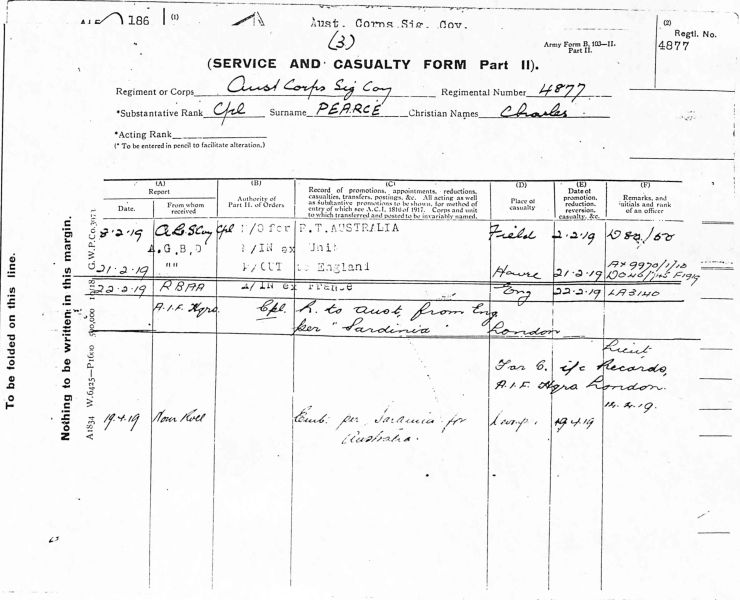 186 (1) Aust. Corps Sig. Coy. (2) Regtl. No.
(3) Army Form B. 103—II. Part II. 4877
(SERVICE AND CASUALTY FORM Part II).
Regiment or Corps Aust Corps Sig Coy Regimental Number 4877
*Substantative Rank Cpl Surname PEARCE Christian Names Charles
*Acting Rank
(* To be entered in pencil to facilitate alteration.)
(A) Report
Date. From whom received
(B) Authority of Part II. of Orders
(C) Record of promotions, appointments, reductions, casualties, transfers, postings, &c. All acting as well as substantive promotions to be shown, for method of entry of which see A.C.I. 1816 of 1917. Corps and unit to which transferred and posted to be invariably named.
(D) Place of casualty
(E) Date of promotion, reduction, reversion, casualty, &c.
(F) Remarks, and initials and rank of an officer
8.2.19 Cpl for R.T.AUSTRALIA Field 2.2.19
A.G.B.D /IN ex Unit
21.2.19 "" /OUT to England Havre 21.2.19
22.2.19 /IN ex France Eng 22.2.19 LA3140
A.I.F. Hqrs. Cpl. R. to Aust. from Eng
per "Sardinia" London
Lieut
For O. i/c Records,
A.I.F. Hqrs London.
19.4.19 Nom Roll Emb. per Sardinia for 19.4.19
Australia.
To be folded on this line.
Nothing to be written in this margin.
A1834 W.6425—P1600 500,000 11/18 G.W.P.Co.3971